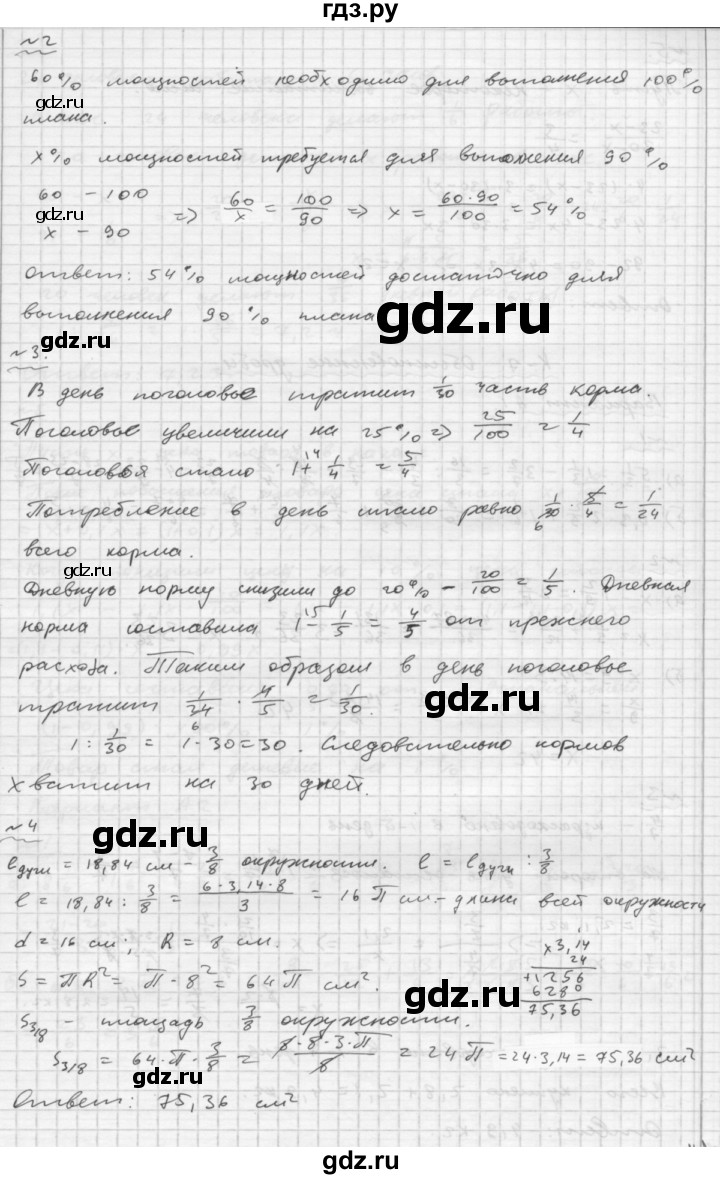 гдз.ру
№2
60% мощностей необходимо для выполнения 100%
gdz.ru
плана.
x% мощностей требуется для выполнения 90%
60 – 100
gdz.ru
x – 90
=> 60/x = 100/90 => x = 60·90/100 = 54%
ответ: 54% мощностей достаточно для
выполнения 90% плана
gdz.ru
№3.
В день поголовье тратит 1/30 часть корма.
Поголовье увеличили на 25% => 25/100 = 1/4
gdz.ru
Поголовья стало 1 + 1/4 = 5/4
Потребление в день стало равно 1/30 · 5/4 = 1/24
всего корма.
gdz.ru
Дневную норму снизили до 20% – 20/100 = 1/5. Дневная
норма составила 1 – 1/5 = 4/5 от прежнего
расхода. Таким образом в день поголовье
gdz.ru
тратит 1/24 · 4/5 = 1/30.
1 : 1/30 = 1·30 = 30. Следовательно кормов
хватит на 30 дней.
gdz.ru
№4
lдуги = 18,84 см – 3/8 окружности. l = lдуги : 3/8
l = 18,84 : 3/8 = 6·3,14·8/3 = 16П см – длина всей окружности
d = 16 см; R = 8 см.
x3,14
24
+1256
6280
75,36
S = ПR² = П·8² = 64П см².
gdz.ru
S3/8 – площадь 3/8 окружности.
S3/8 = 64·П·3/8 = 8·8·3·П/8 = 24П = 24·3,14 = 75,36 см²
Ответ: 75,36 см²
gdz.ru